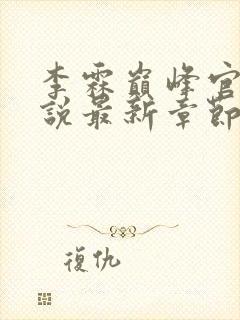 李霖巔峰官
說最新章節
復仇